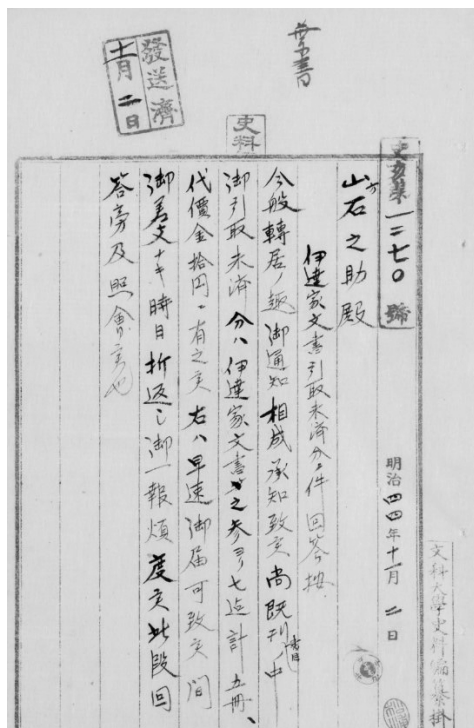 葉書
發送濟
十一月二日
史料
史第一二七〇號
明治四四年十一月二日
文科大學史料編纂掛
山石之助殿
伊達家文書引取未濟分ノ件回答按
今般轉居ノ趣御通知相成承知致候尚既刊書目ノ中
御引取未濟分ハ伊達家文書之参ヨリ七迄計五冊、
代價金拾円ニ有之候右ハ早速御届可致候間
御差支ナキ時日折返シ御一報煩度候此段回
答旁及照會候也